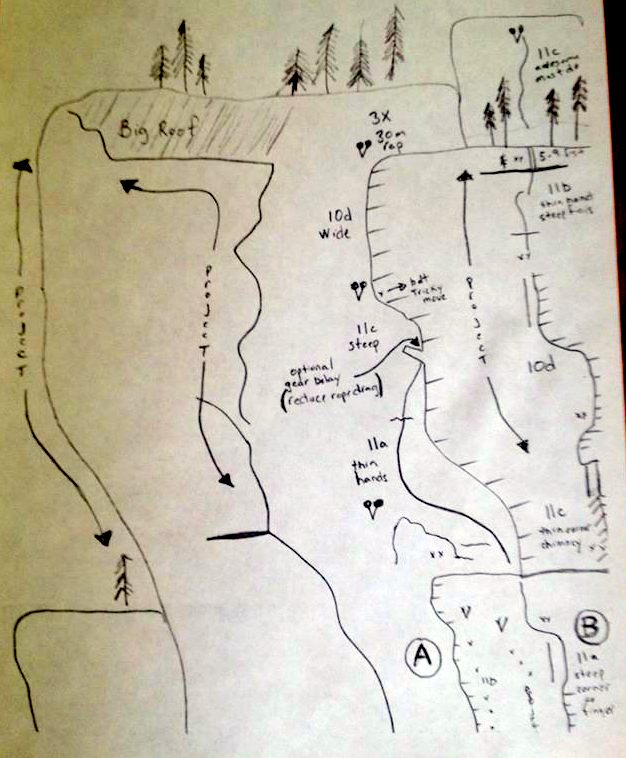 11c
awesome
must do
Big Roof
3X
30m
rap
5.9
11b
thin hand
steep
10d
wide
PROJECT
PROJECT
PROJECT
bolt
tricky
move
11c
steep
optional
gear belay
(reduce rope drag)
10d
11a
thin
hands
11c
thin corner
chimney
xx
xx
xx
A
B
11b
11a
steep
corner
finger